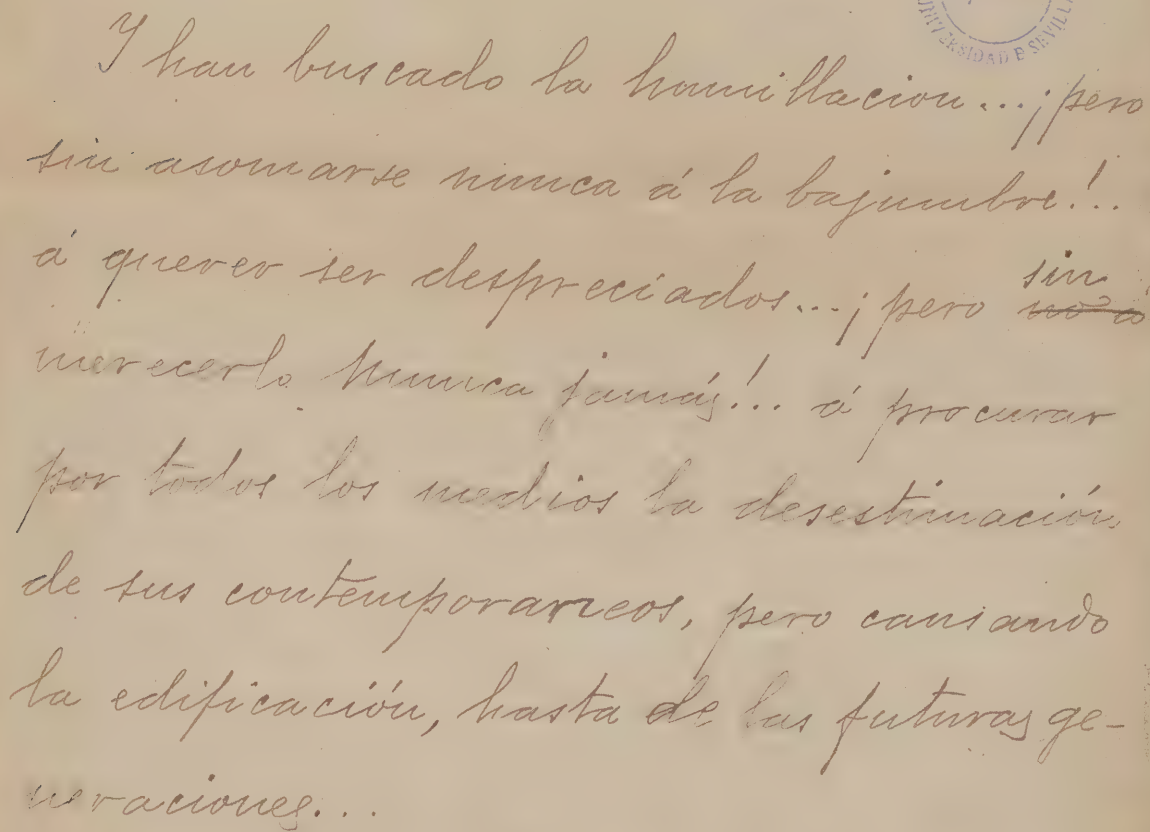 UNIVERSIDAD D SEVILL
Y han buscado la humillacion...¡pero
sin asomarse nunca á la bajumbre!..
á querer ser despreciados...¡pero sin
merecerlo nunca jamás!... á procurar
por todos los medios la desestimación
de sus contemporaneos, pero causando
la edificación, hasta de las futuras ge-
neraciones...